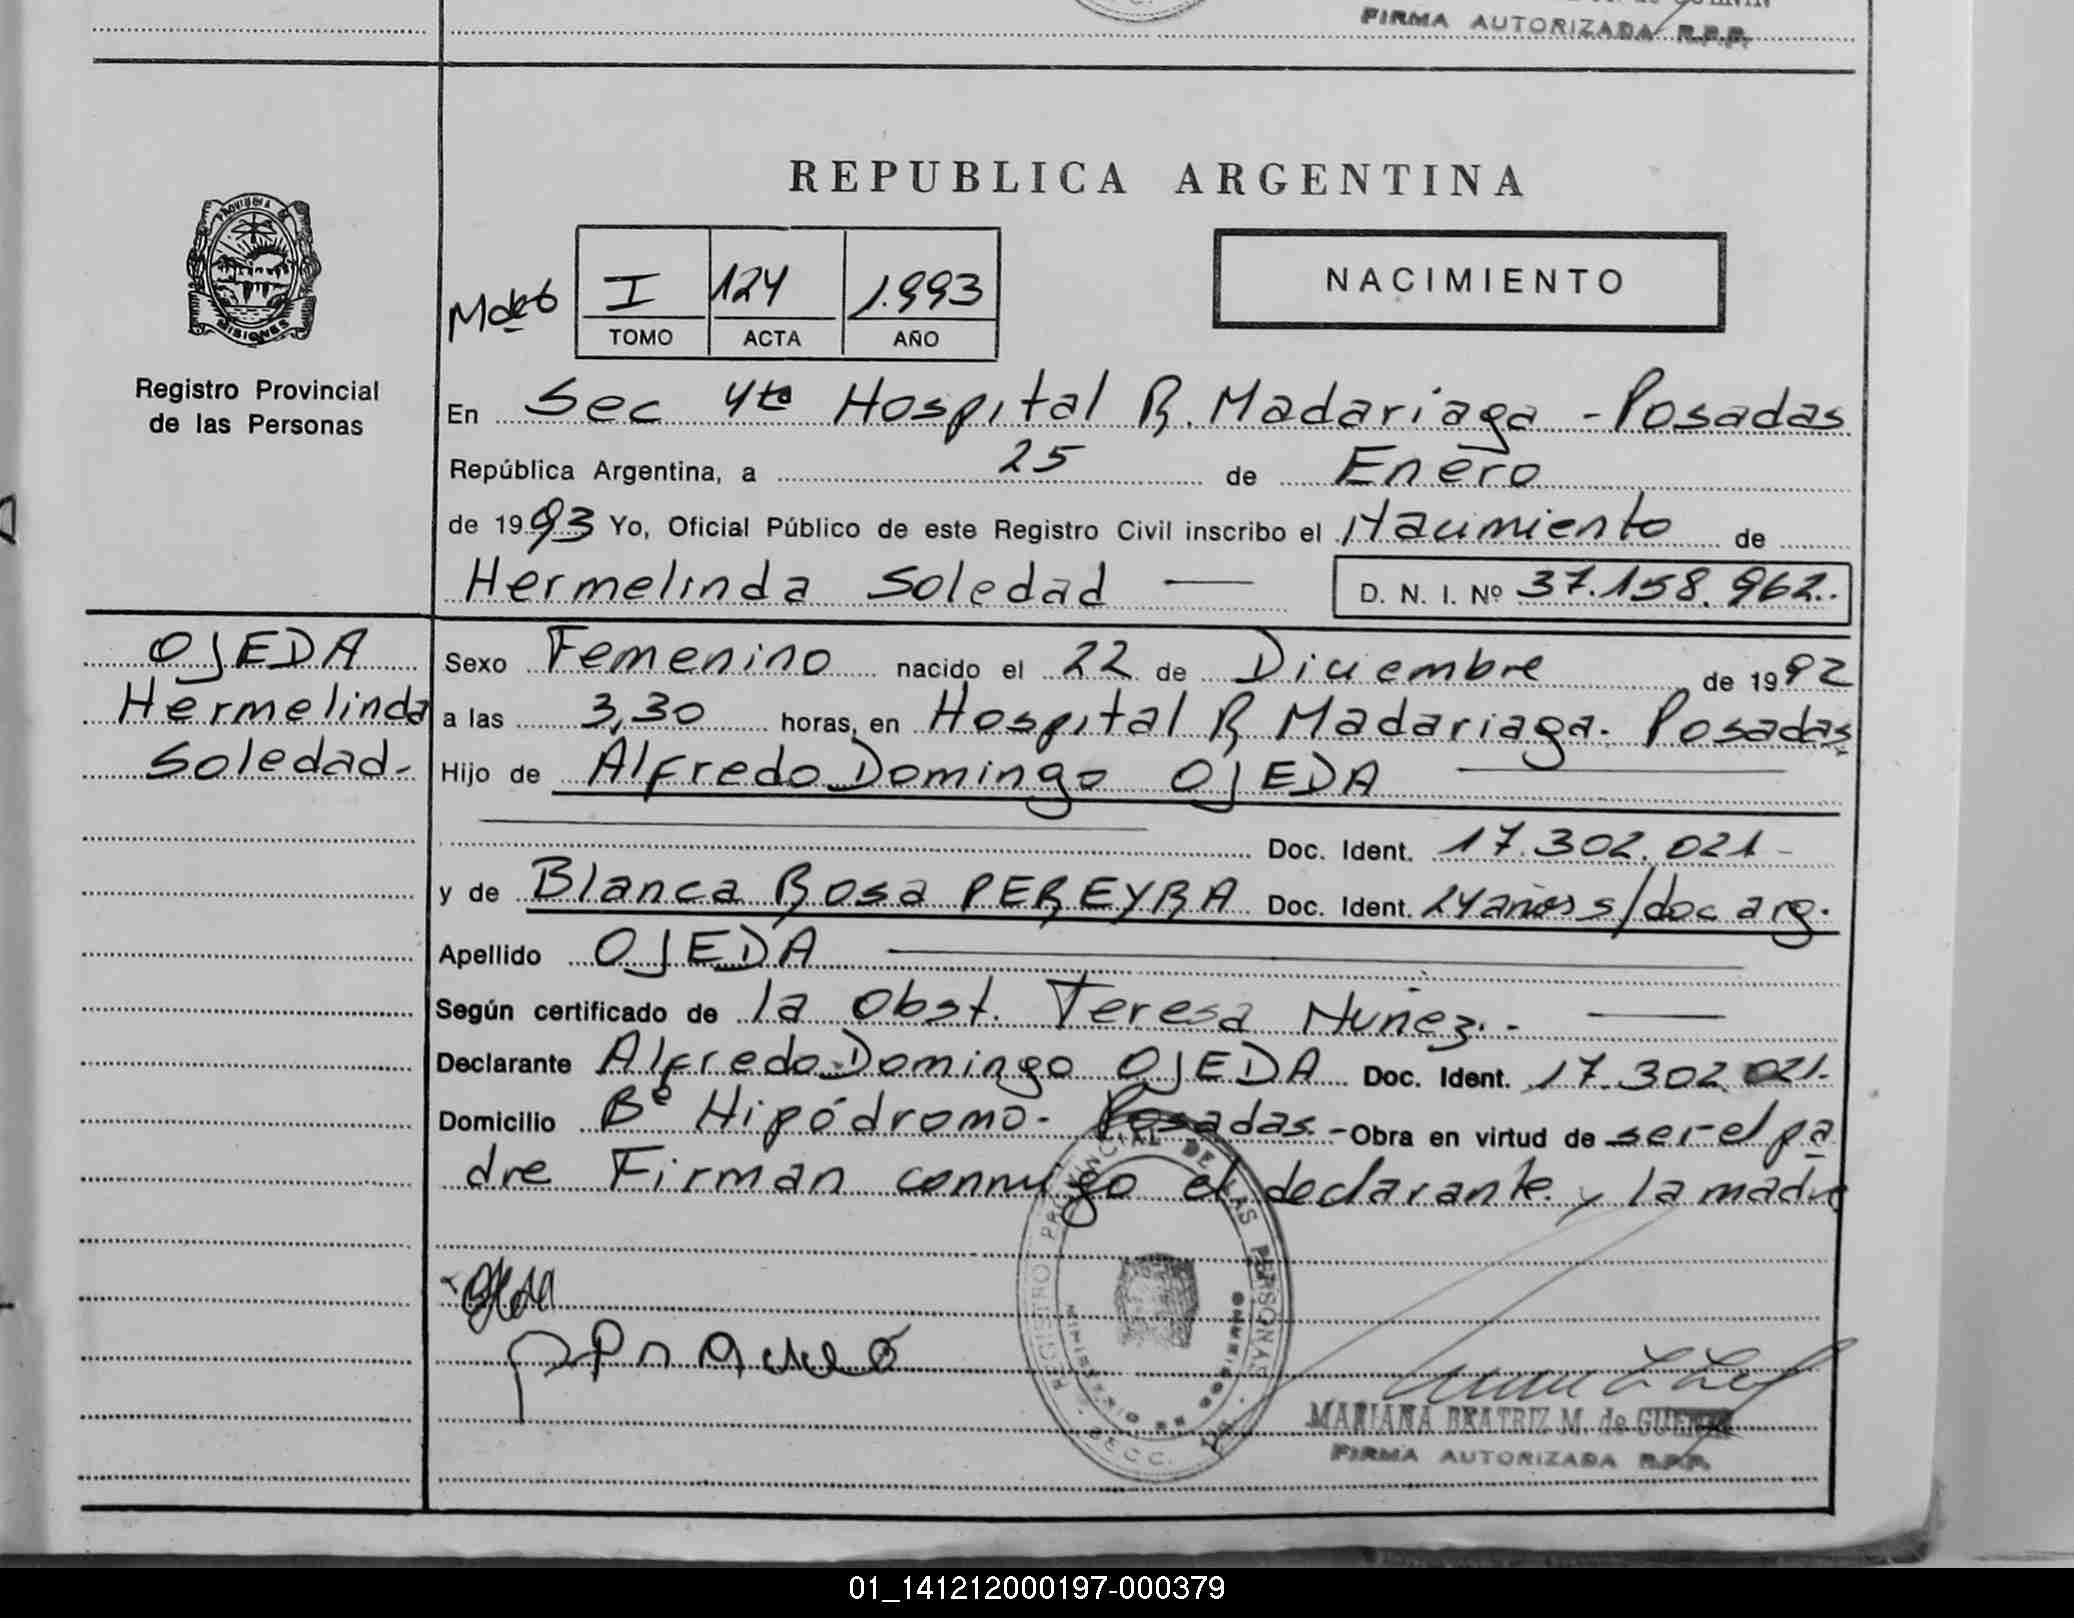 FIRMA AUTORIZADA R.P.P.
REPUBLICA ARGENTINA
PROVINCIA DE
MISIONES
Registro Provincial
de las Personas
I 124 1.993
TOMO ACTA AÑO
NACIMIENTO
En Sec 4ta Hospital R. Madariaga - Posadas
República Argentina, a 25 de Enero
de 1993 Yo, Oficial Público de este Registro Civil inscribo el Nacimiento de
Hermelinda Soledad — D. N. I. Nº 37.158.962.
OJEDA
Hermelinda
Soledad-
Sexo Femenino nacido el 22 de Diciembre de 1992
a las 3,30 horas, en Hospital R Madariaga. Posadas
Hijo de Alfredo Domingo OJEDA —
Doc. Ident. 17.302.021-
y de Blanca Rosa PEREYRA Doc. Ident. 24 años s/doc arg.
Apellido OJEDA —
Según certificado de la Obst. Teresa Nuñez.- —
Declarante Alfredo Domingo OJEDA Doc. Ident. 17.302.021.
Domicilio Bº Hipódromo- Posadas.- Obra en virtud de ser el pa
dre Firman conmigo el declarante y la madre
REGISTRO PROVINCIAL DE LAS PERSONAS
MINISTERIO DE GOBIERNO
MARIANA BEATRIZ M. de GUENIN
FIRMA AUTORIZADA R.P.P.
01_141212000197-000379